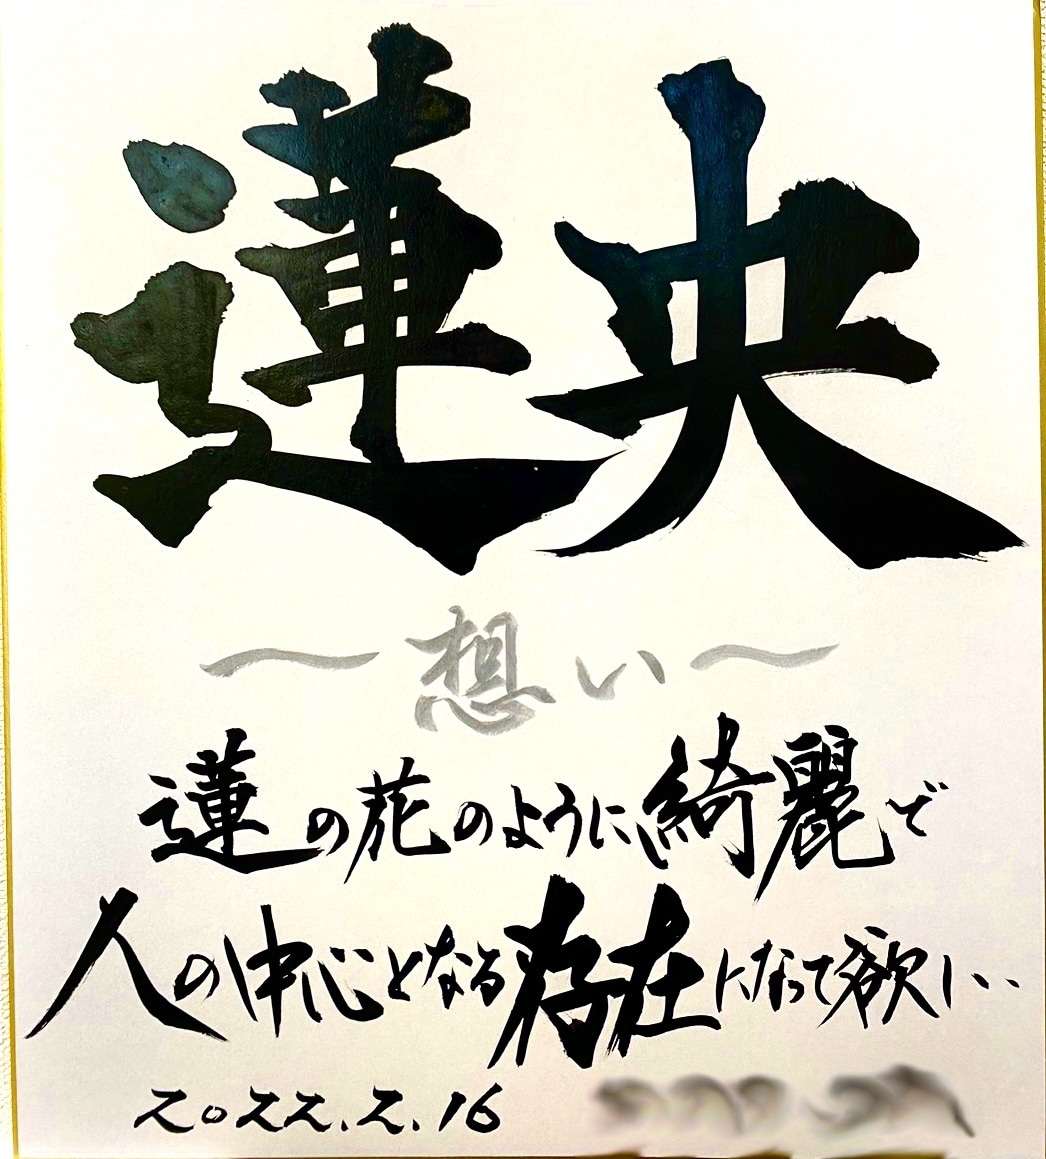 蓮央
〜想い〜
蓮の花のように綺麗で
人の中心となる存在になって欲しい..
2022.2.16